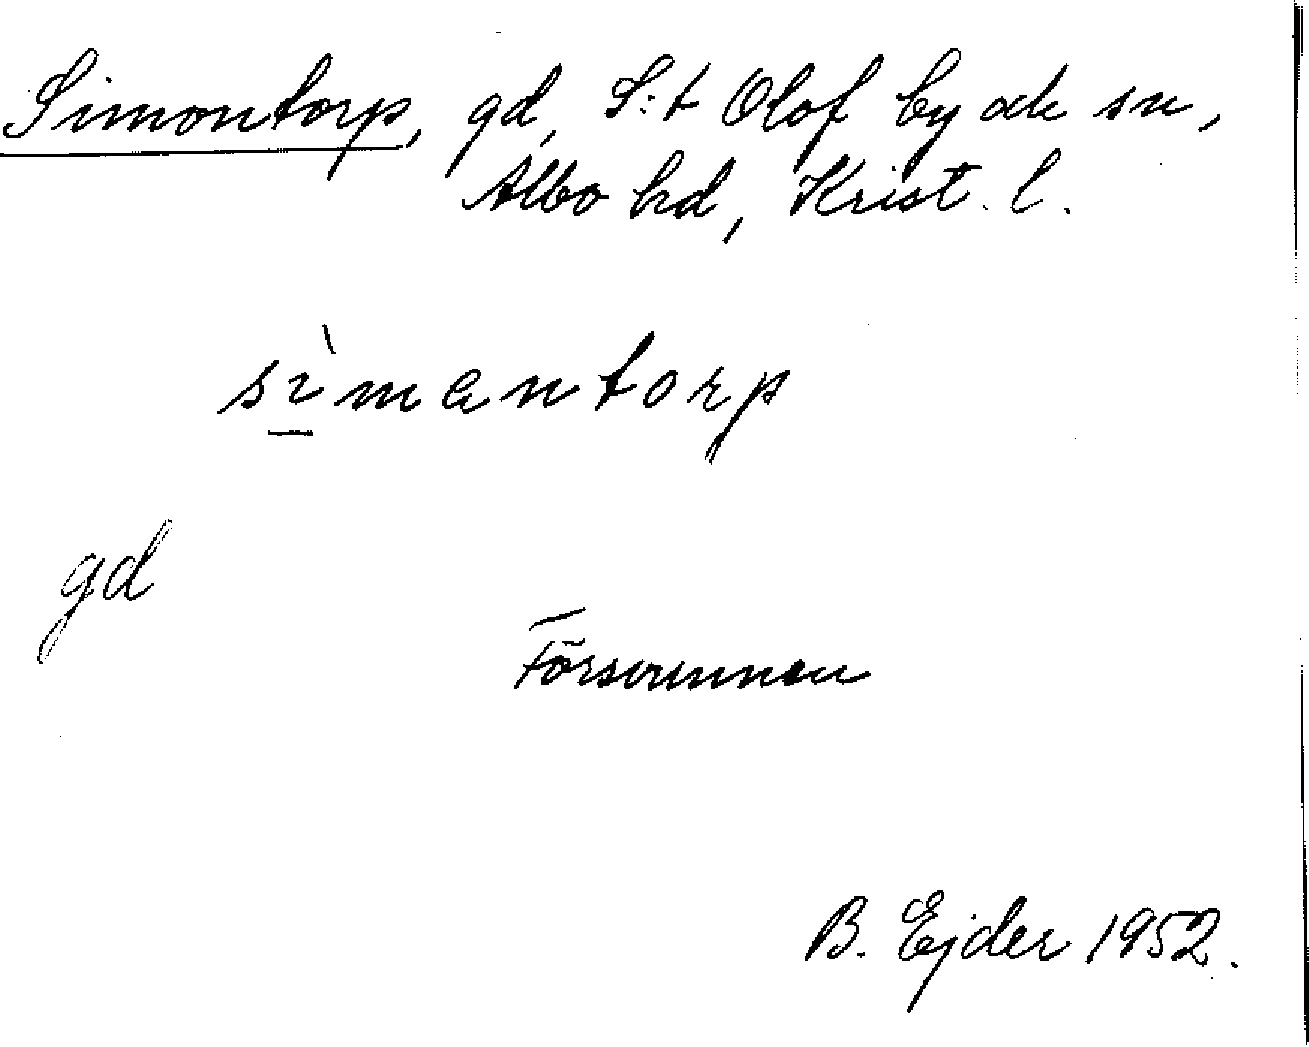 Simontorp, gd, S:t Olof by ok sn,
Albo hd, Krist. l.
sìmantorp
gd
Försvunnen
B. Ejder 1952.